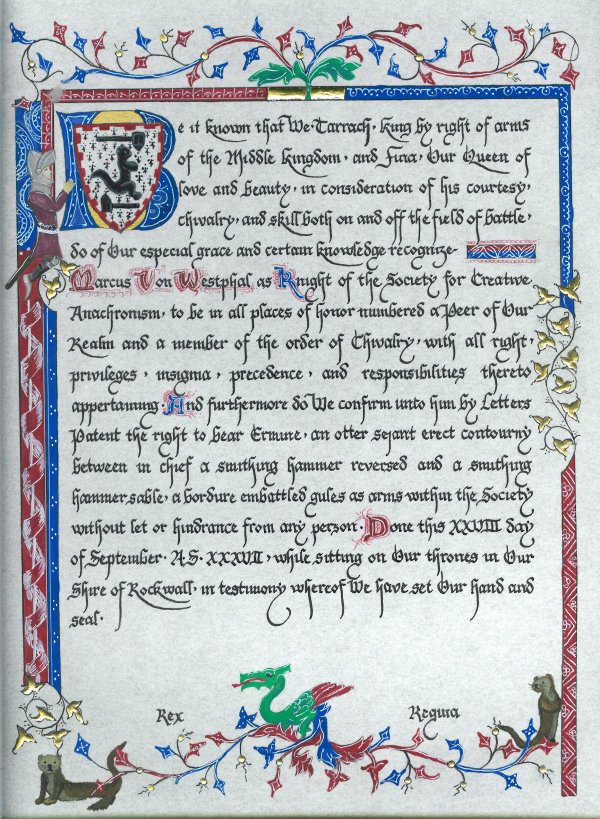 Be it known that We Tarrach · King by right of arms
of the Middle Kingdom · and Fina · Our Queen of
love and beauty · in consideration of his courtesy ·
chivalry · and skill both on and off the field of battle ·
do of Our especial grace and certain knowledge recognize-
Marcus Von Westphal as Knight of the Society for Creative
Anachronism, to be in all places of honor numbered a Peer of Our
Realm and a member of the order of Chivalry · with all right ·
privileges · insignia · precedence · and responsibilities thereto
appertaining · And furthermore do We confirm unto him by Letters
Patent the right to bear Ermine · an otter sejant erect contourny
between in chief a smithing hammer reversed and a smithing
hammer sable · a bordure embattled gules as arms within the Society
without let or hindrance from any person · Done this XXVIII day
of September · A·S· XXXVII · while sitting on Our thrones in Our
Shire of Rockwall · in testimony whereof We have set Our hand and
seal ·
Rex Regina